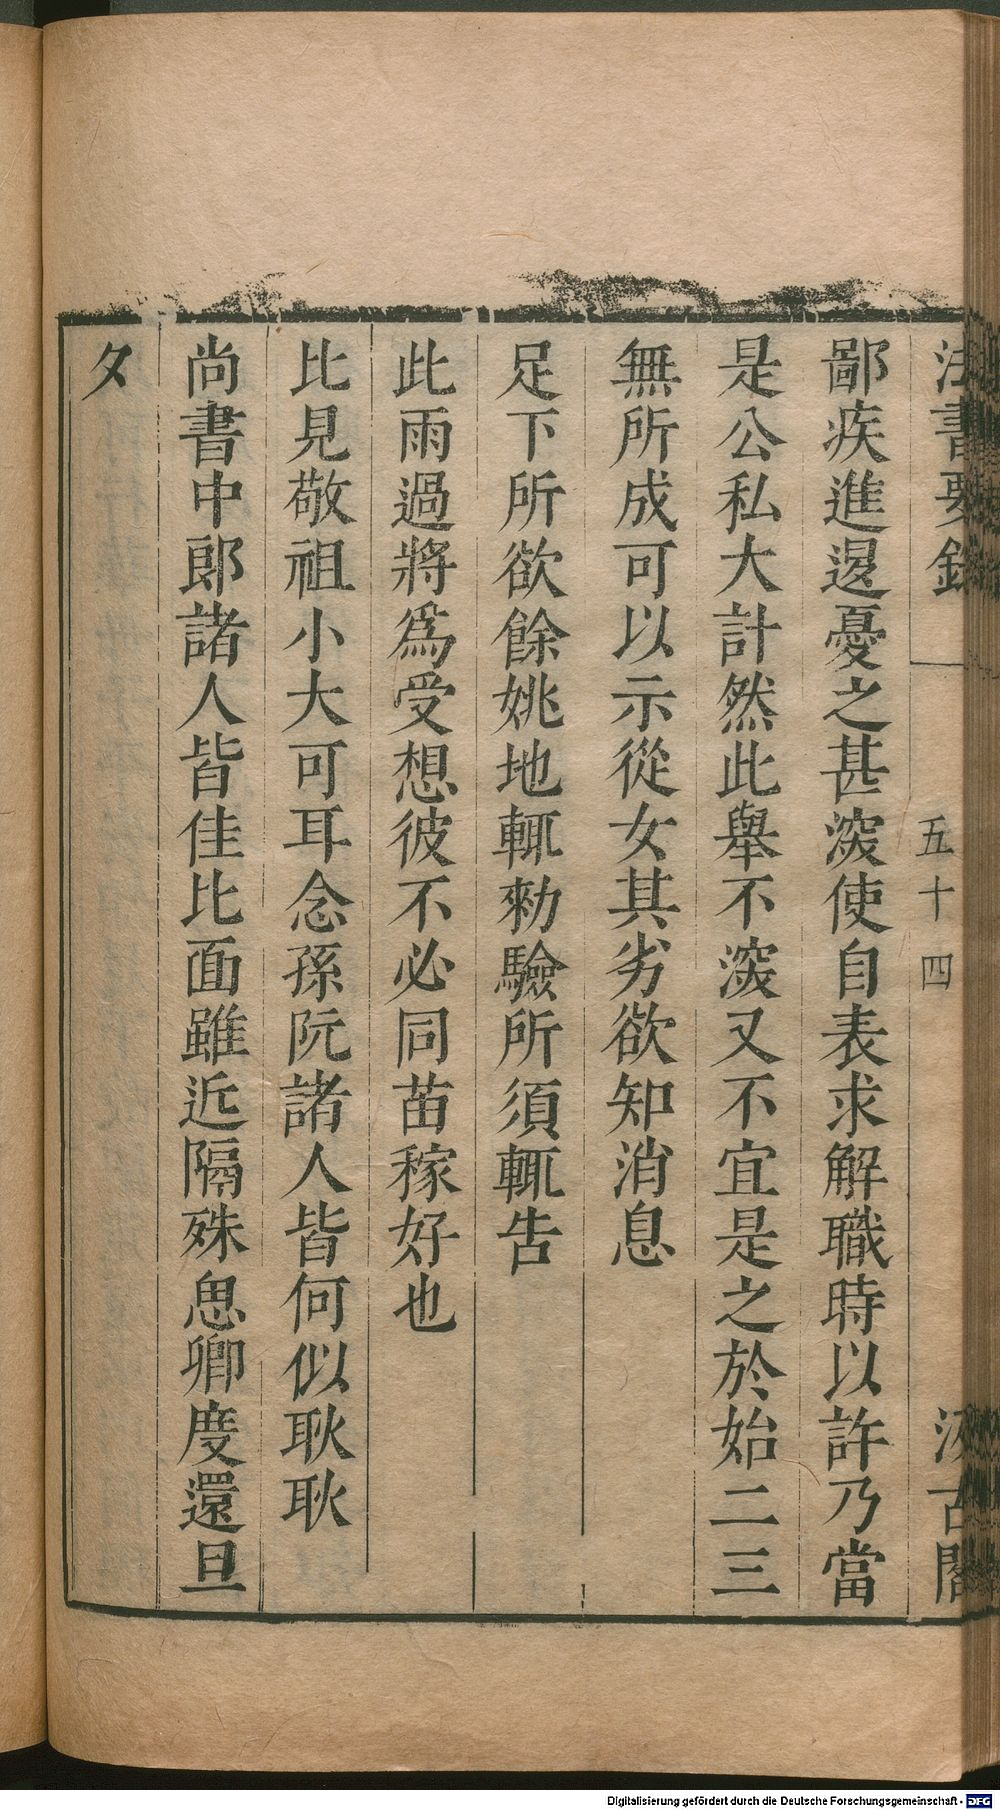 法書要錄 五十四 汲古閣
鄙疾進退憂之甚深使自表求解職時以許乃當
是公私大計然此舉不深又不宜是之於始二三
無所成可以示從女其劣欲知消息
足下所欲餘姚地輒勑驗所須輒告
此雨過將爲受想彼不必同苗稼好也
比見敬祖小大可耳念孫阮諸人皆何似耿耿
尚書中郎諸人皆佳比面雖近隔殊思卿度還旦
夕
Digitalisierung gefördert durch die Deutsche Forschungsgemeinschaft - DFG